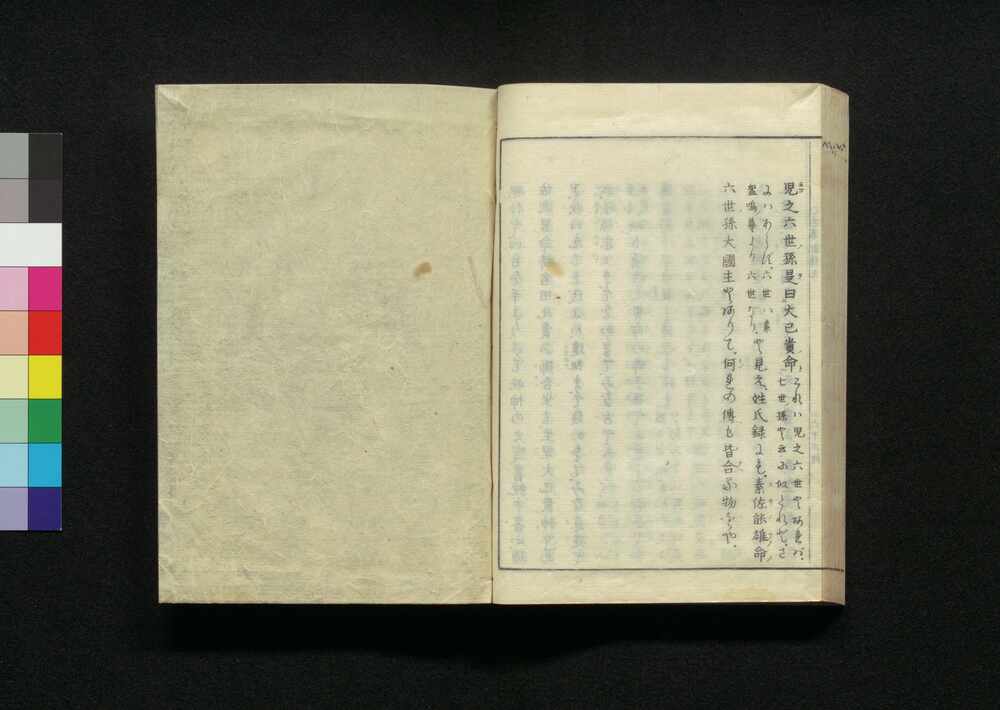 児之六世孫是曰大己貴命
これハ児之六世やあれバ、
七世孫や云に似くれど、さ
にハあらず、六世ハ素
盞嗚尊より六世なり、や見え、姓氏録にも、素佐能雄命
六世孫大國主やありて、何れの傳も皆合る物をや、